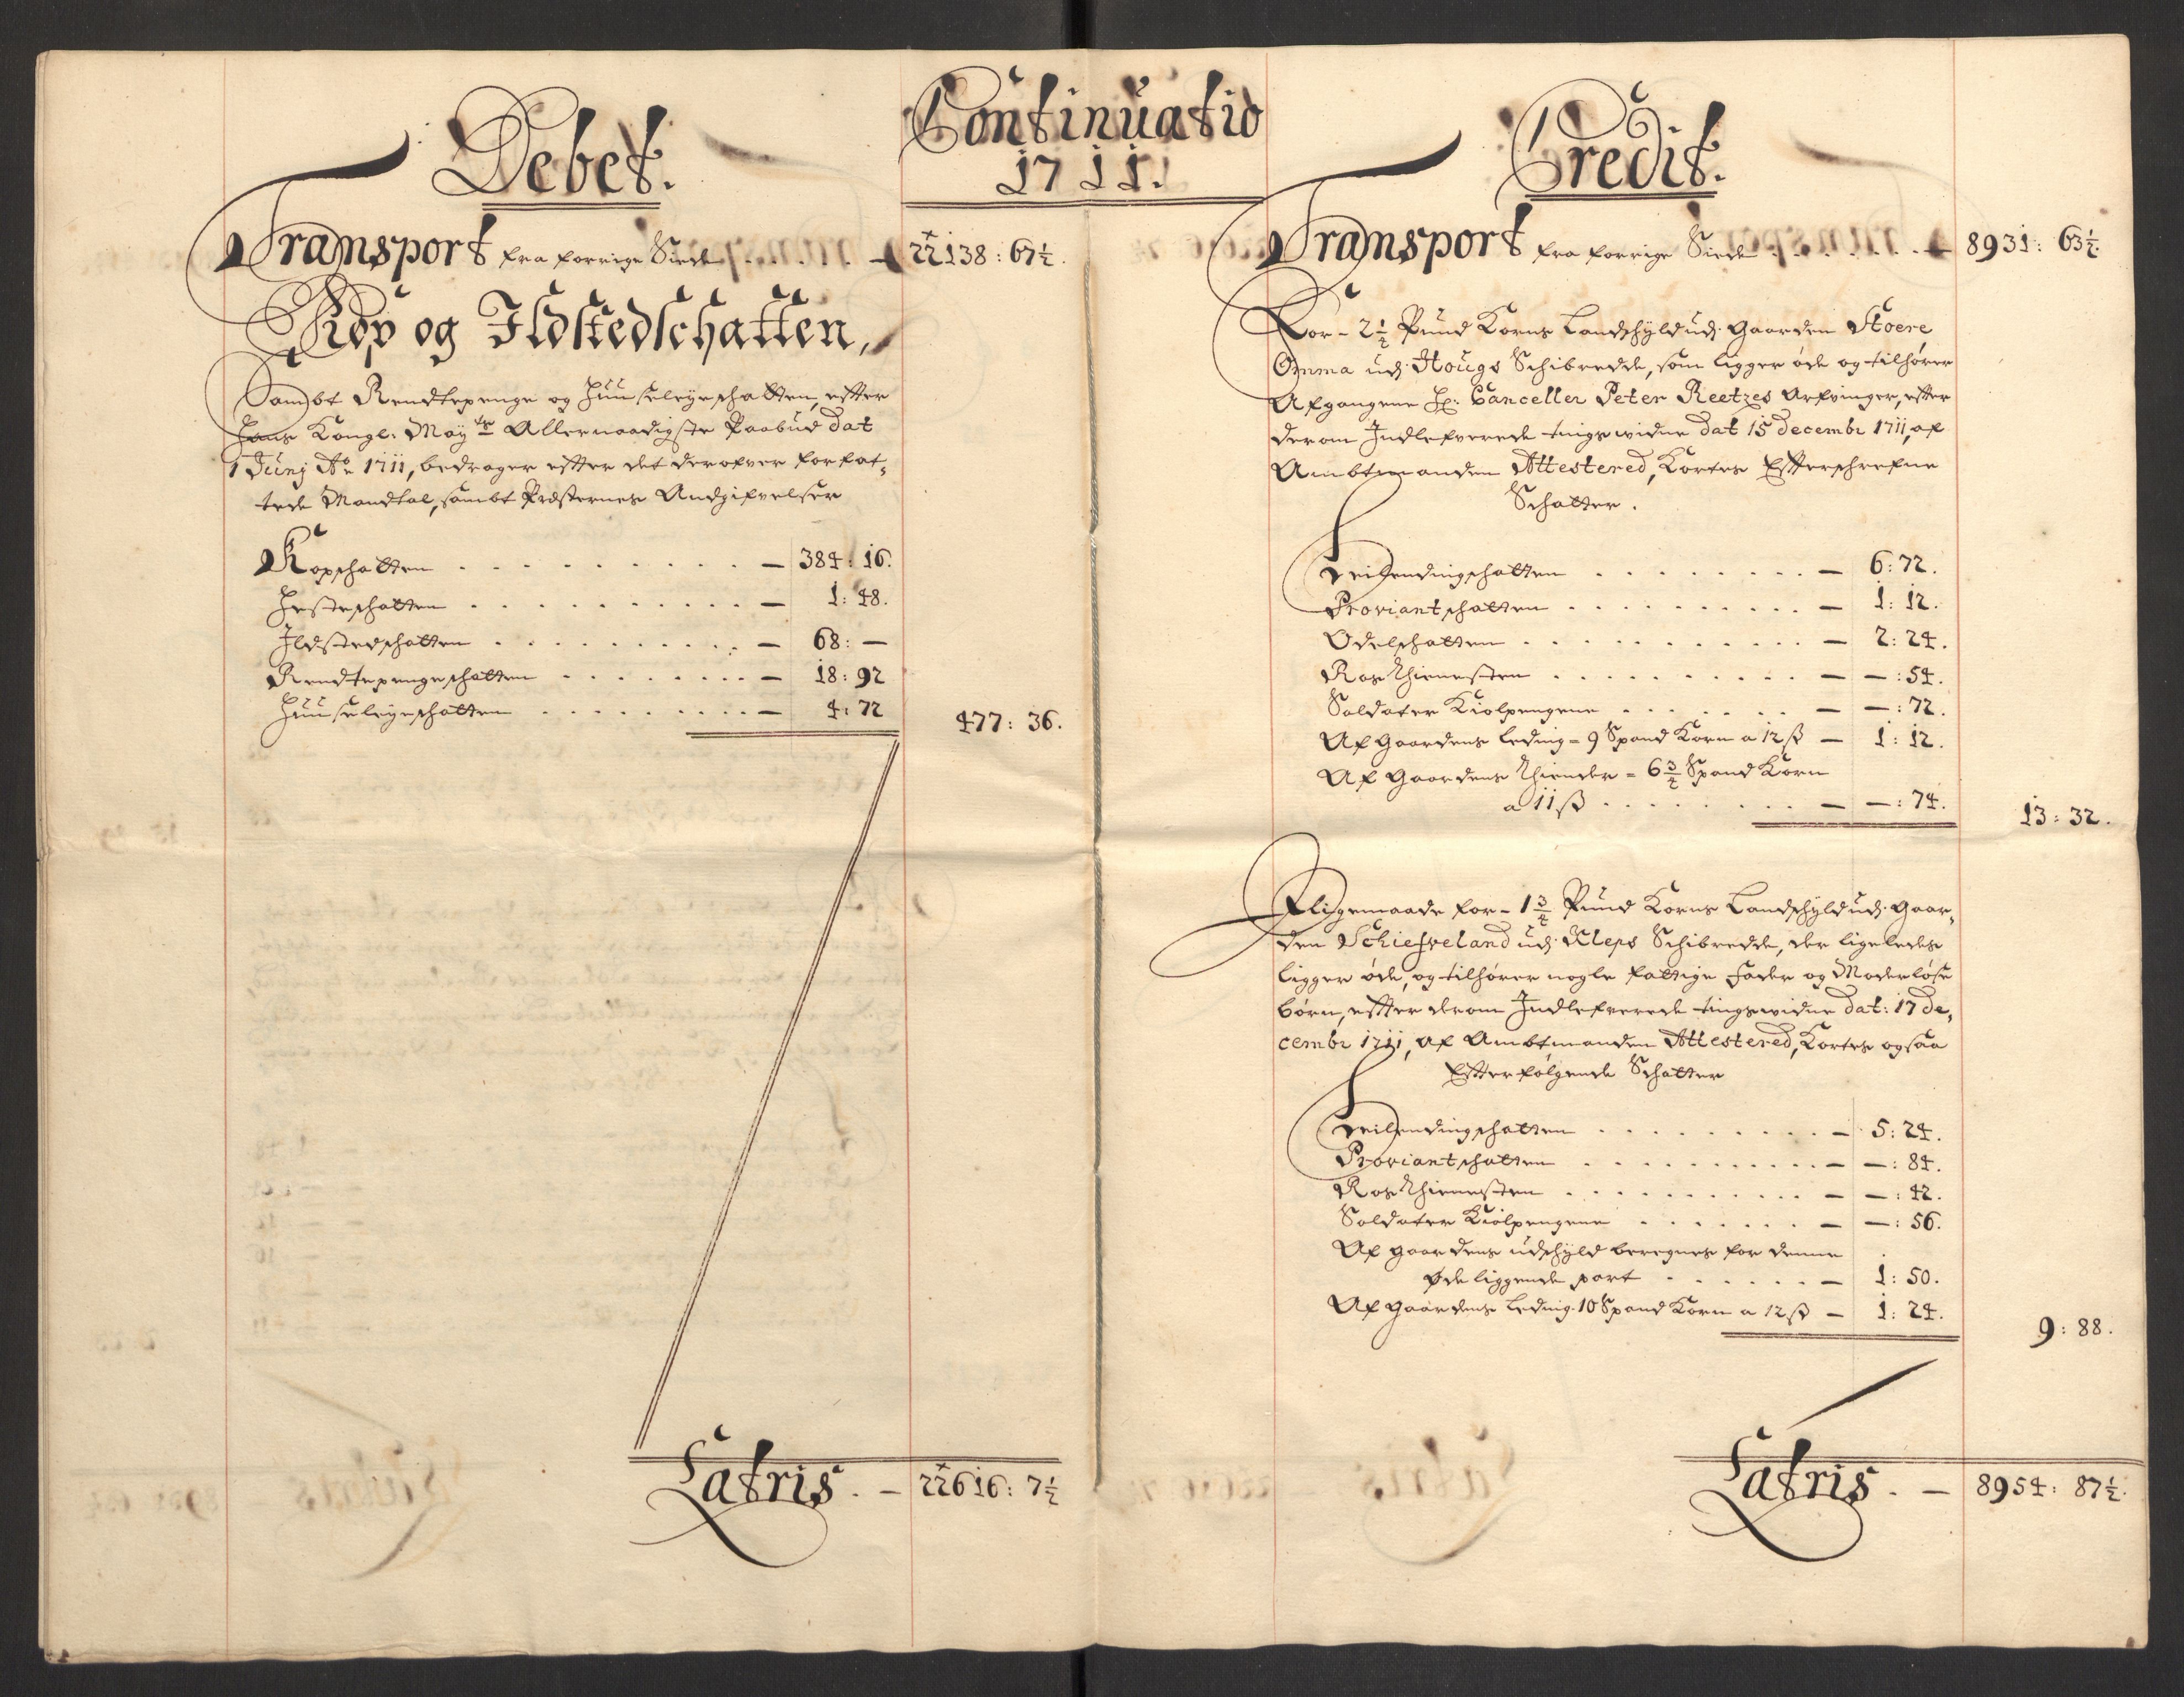 Continuatio
1711.
Debet.
Transport fra forrige Siede - 22138: 67½.
Kop og Ildstedschatten,
Sambt Rendtepenge og Huuseleyeschatten, effter
Hans Kongl: May:ts Allernaadigste Paabud dat
1 Junj Ao 1711, bedrager effter det derofver forfat-
tede Mandtal, sambt Præsternes Andgifvelser
Kopschatten - 384: 16.
Hesteschatten - 1: 48.
Ildstedschatten - 68: -
Rendtepengeschatten - 18: 92
Huuseleyeschatten - 4: 72
477: 36.
Latris. - 22616: 7½
Credit.
Transport fra forrige Siede - 8931: 63½.
For - 2½ Pund Korns Landschyld udj Gaarden Stoere
Omma udj Hougs Schibredde, som ligger øde og tilhører
Afgangene Hr: Canceller Peter Reetzes Arfvinger, effter
derom Indlefverede tingswidne dat 15 decembr 1711, af
Ambtmanden Attestered, Kortes Effterschrefne
Schatter.
Leilendingschatten - 6: 72.
Proviantschatten - 1: 12.
Odelschatten - 2: 24.
Rosthienesten - -: 54.
Soldater Kiolpengene - -: 72.
Af Gaardens Leding - 9 Spand Korn a 12 ß - 1: 12.
Af Gaardens Thiender - 6¾ Spand Korn
a 11 ß - -: 74.
13: 32.
Iligemaade for - 1¾ Pund Korns Landschyld udj Gaar-
den Schiefveland udj Kleps Schibredde, der ligeledes
ligger øde, og tilhører nogle fattige fader og Moderløse
børn, effter derom Indlefverede tingswidne dat: 17 de-
cembr 1711, af Ambtmanden Attestered, Kortes ogsaa
Effterfølgende Schatter
Leilendingschatten - 5: 24.
Proviantschatten - -: 84.
Rosthienesten - -: 42.
Soldater Kiolpengene - -: 56.
Af Gaardens udschyld beregnes for denne
øde liggende part - 1: 50.
Af Gaardens Leding 10 Spand Korn a 12 ß - 1: 24.
9: 88.
Latris. - 8954: 87½.